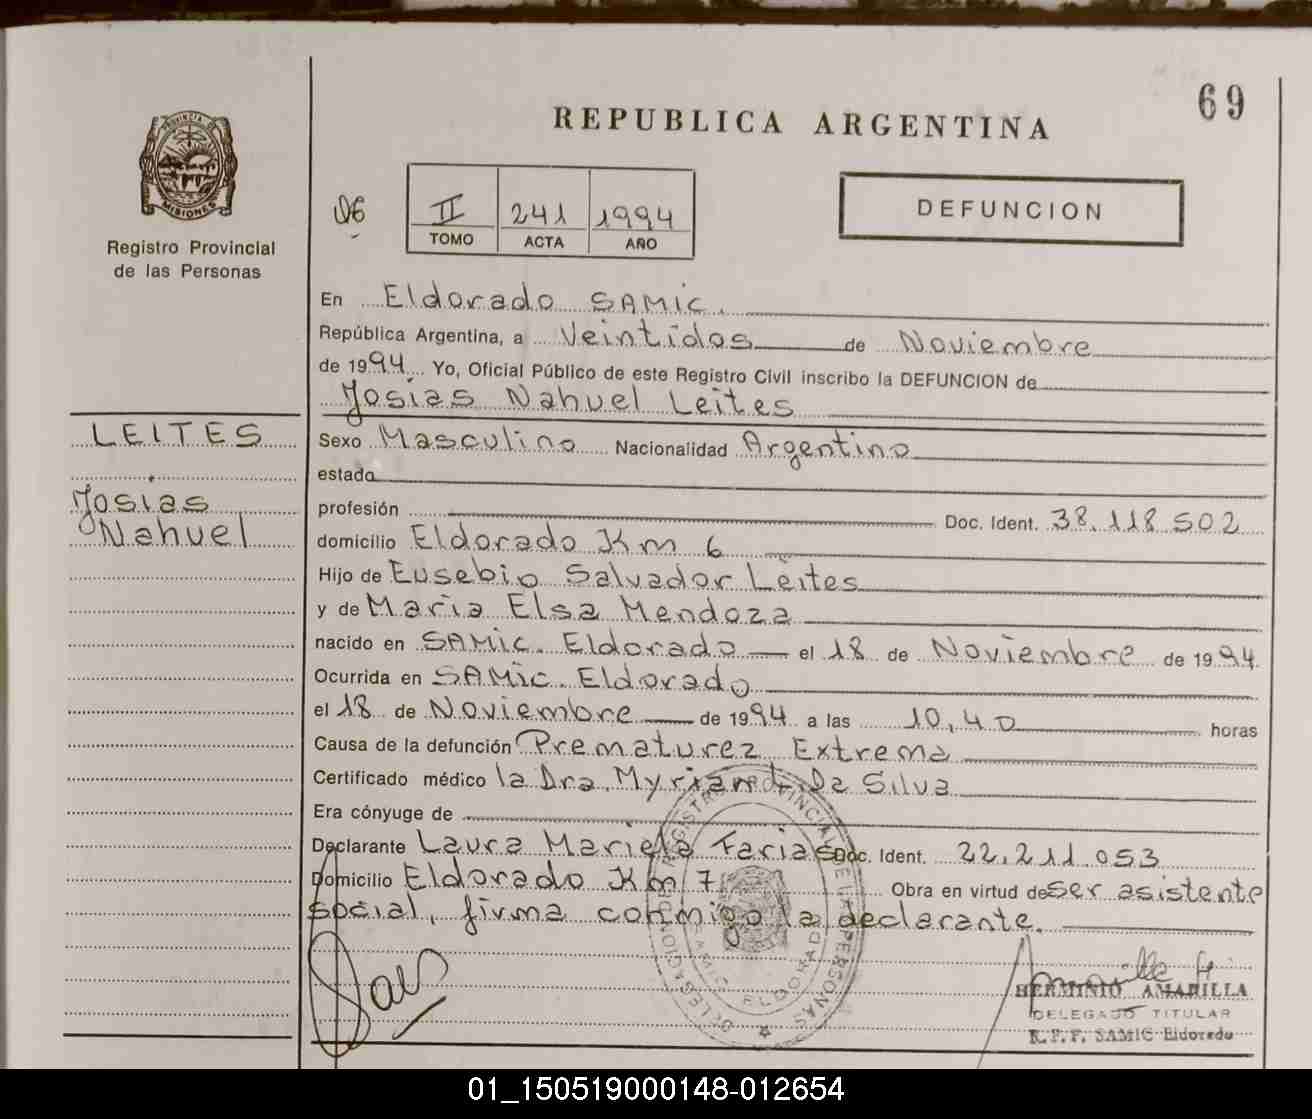 69
REPUBLICA ARGENTINA
PROVINCIA DE
MISIONES
Registro Provincial
de las Personas
II 241 1994
TOMO ACTA AÑO
DEFUNCION
En Eldorado SAMIC.
República Argentina, a Veintidos de Noviembre
de 1994. Yo, Oficial Público de este Registro Civil inscribo la DEFUNCION de
Josias Nahuel Leites
LEITES
Josias
Nahuel
Sexo Masculino Nacionalidad Argentino
estado
profesión Doc. Ident. 38.118.502
domicilio Eldorado Km 6
Hijo de Eusebio Salvador Leites
y de Maria Elsa Mendoza
nacido en SAMIC. Eldorado el 18 de Noviembre de 1994
Ocurrida en SAMIC. Eldorado
el 18 de Noviembre de 1994 a las 10,40 horas
Causa de la defunción Prematurez Extrema
Certificado médico la Dra. Myriam Da Silva
Era cónyuge de
Declarante Laura Mariela Farias Doc. Ident. 22.211.053
Domicilio Eldorado Km 7 Obra en virtud de ser asistente
social, firma conmigo la declarante.
HERMINIO AMARILLA
DELEGADO TITULAR
R.P.P. SAMIC Eldorado
01_150519000148-012654